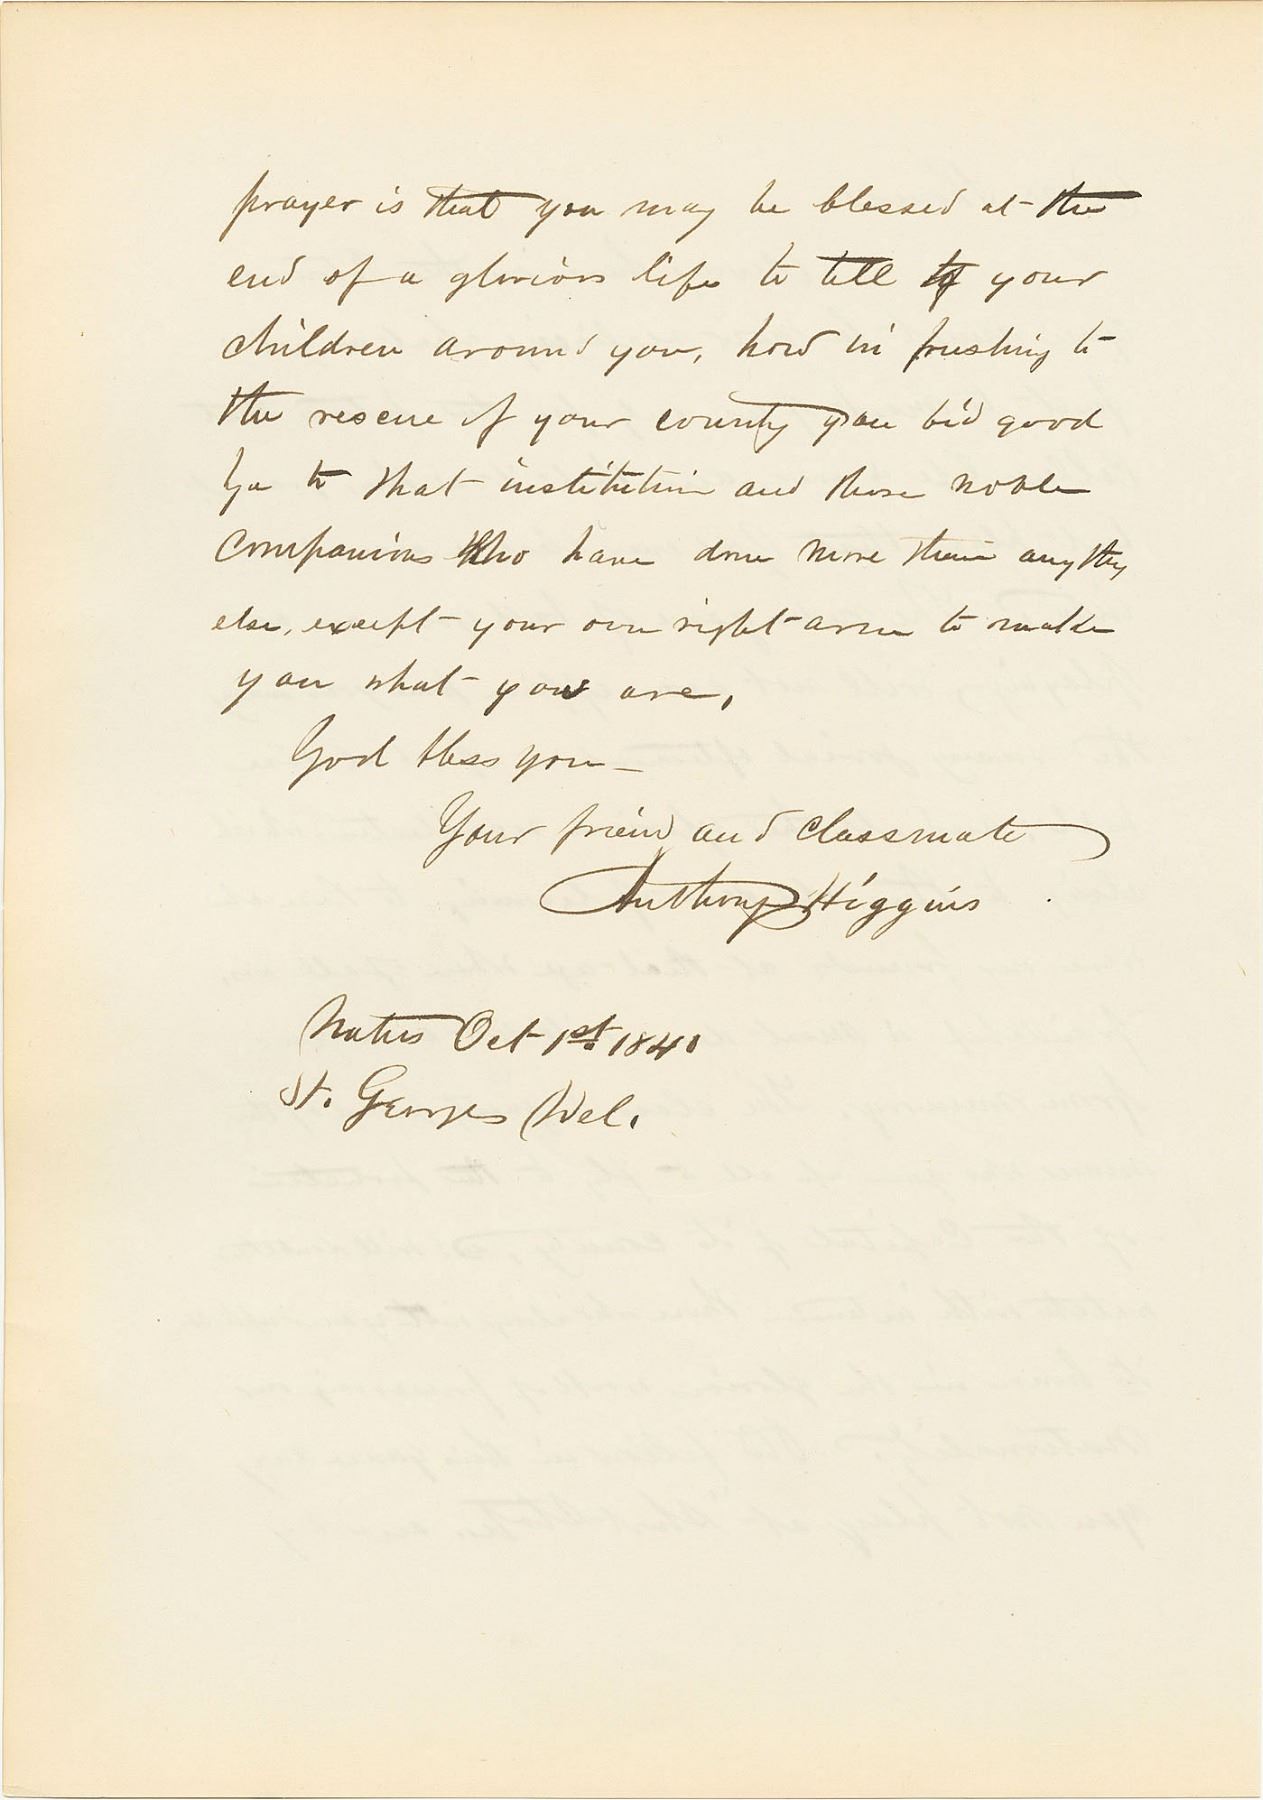 prayer is that you may be blessed at the
end of a glorious life to tell to your
children around you, how in rushing to
the rescue of your country you bid good
by to that institution and those noble
companions who have done more than any thing
else, except your own right arm to make
you what you are.
God bless you—
Your friend and classmate
Anthony Higgins
Natus Oct 1st. 1840
St. Georges Del.